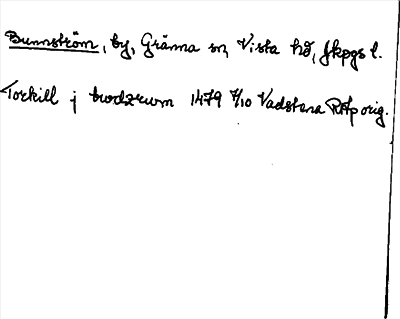 Bunnström, by, Gränna sn, Vista hd, Jkpgs l.
Torkill j brodzrwm 1479 7/10 Vadstena RAp orig.